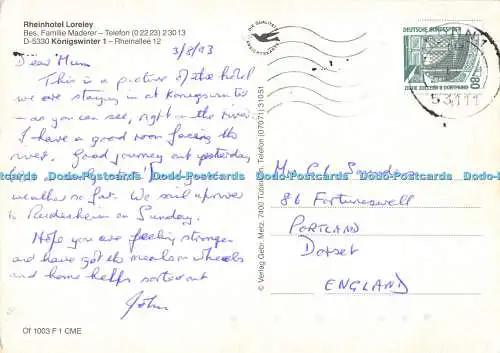 Rheinhotel Loreley
Bes. Familie Maderer – Telefon (0 22 23) 2 30 13
D-5330 Königswinter 1 – Rheinallee 12
3/8/93
Dear Mum
This is a picture of the hotel
we are staying in at Konigswinter
- as you can see, right on the river.
I have a good room facing the
river. Good journey out yesterday
weather so far. We sail upriver
to Rudesheim on Sunday.
Hope you are feeling stronger
and have got the meals on wheels
and home helps sorted out
John
Of 1003 F 1 CME
© Verlag Gebr. Metz, 7400 Tübingen, Telefon (07071) 31051
DEUTSCHE BUNDESPOST
80
ZECHE ZOLLERN II DORTMUND
5311
86 Fortuneswell
PORTLAND
Dorset
ENGLAND
Dodo-Postcards Dodo-Postcards Dodo-Postcards Dodo-Postcards